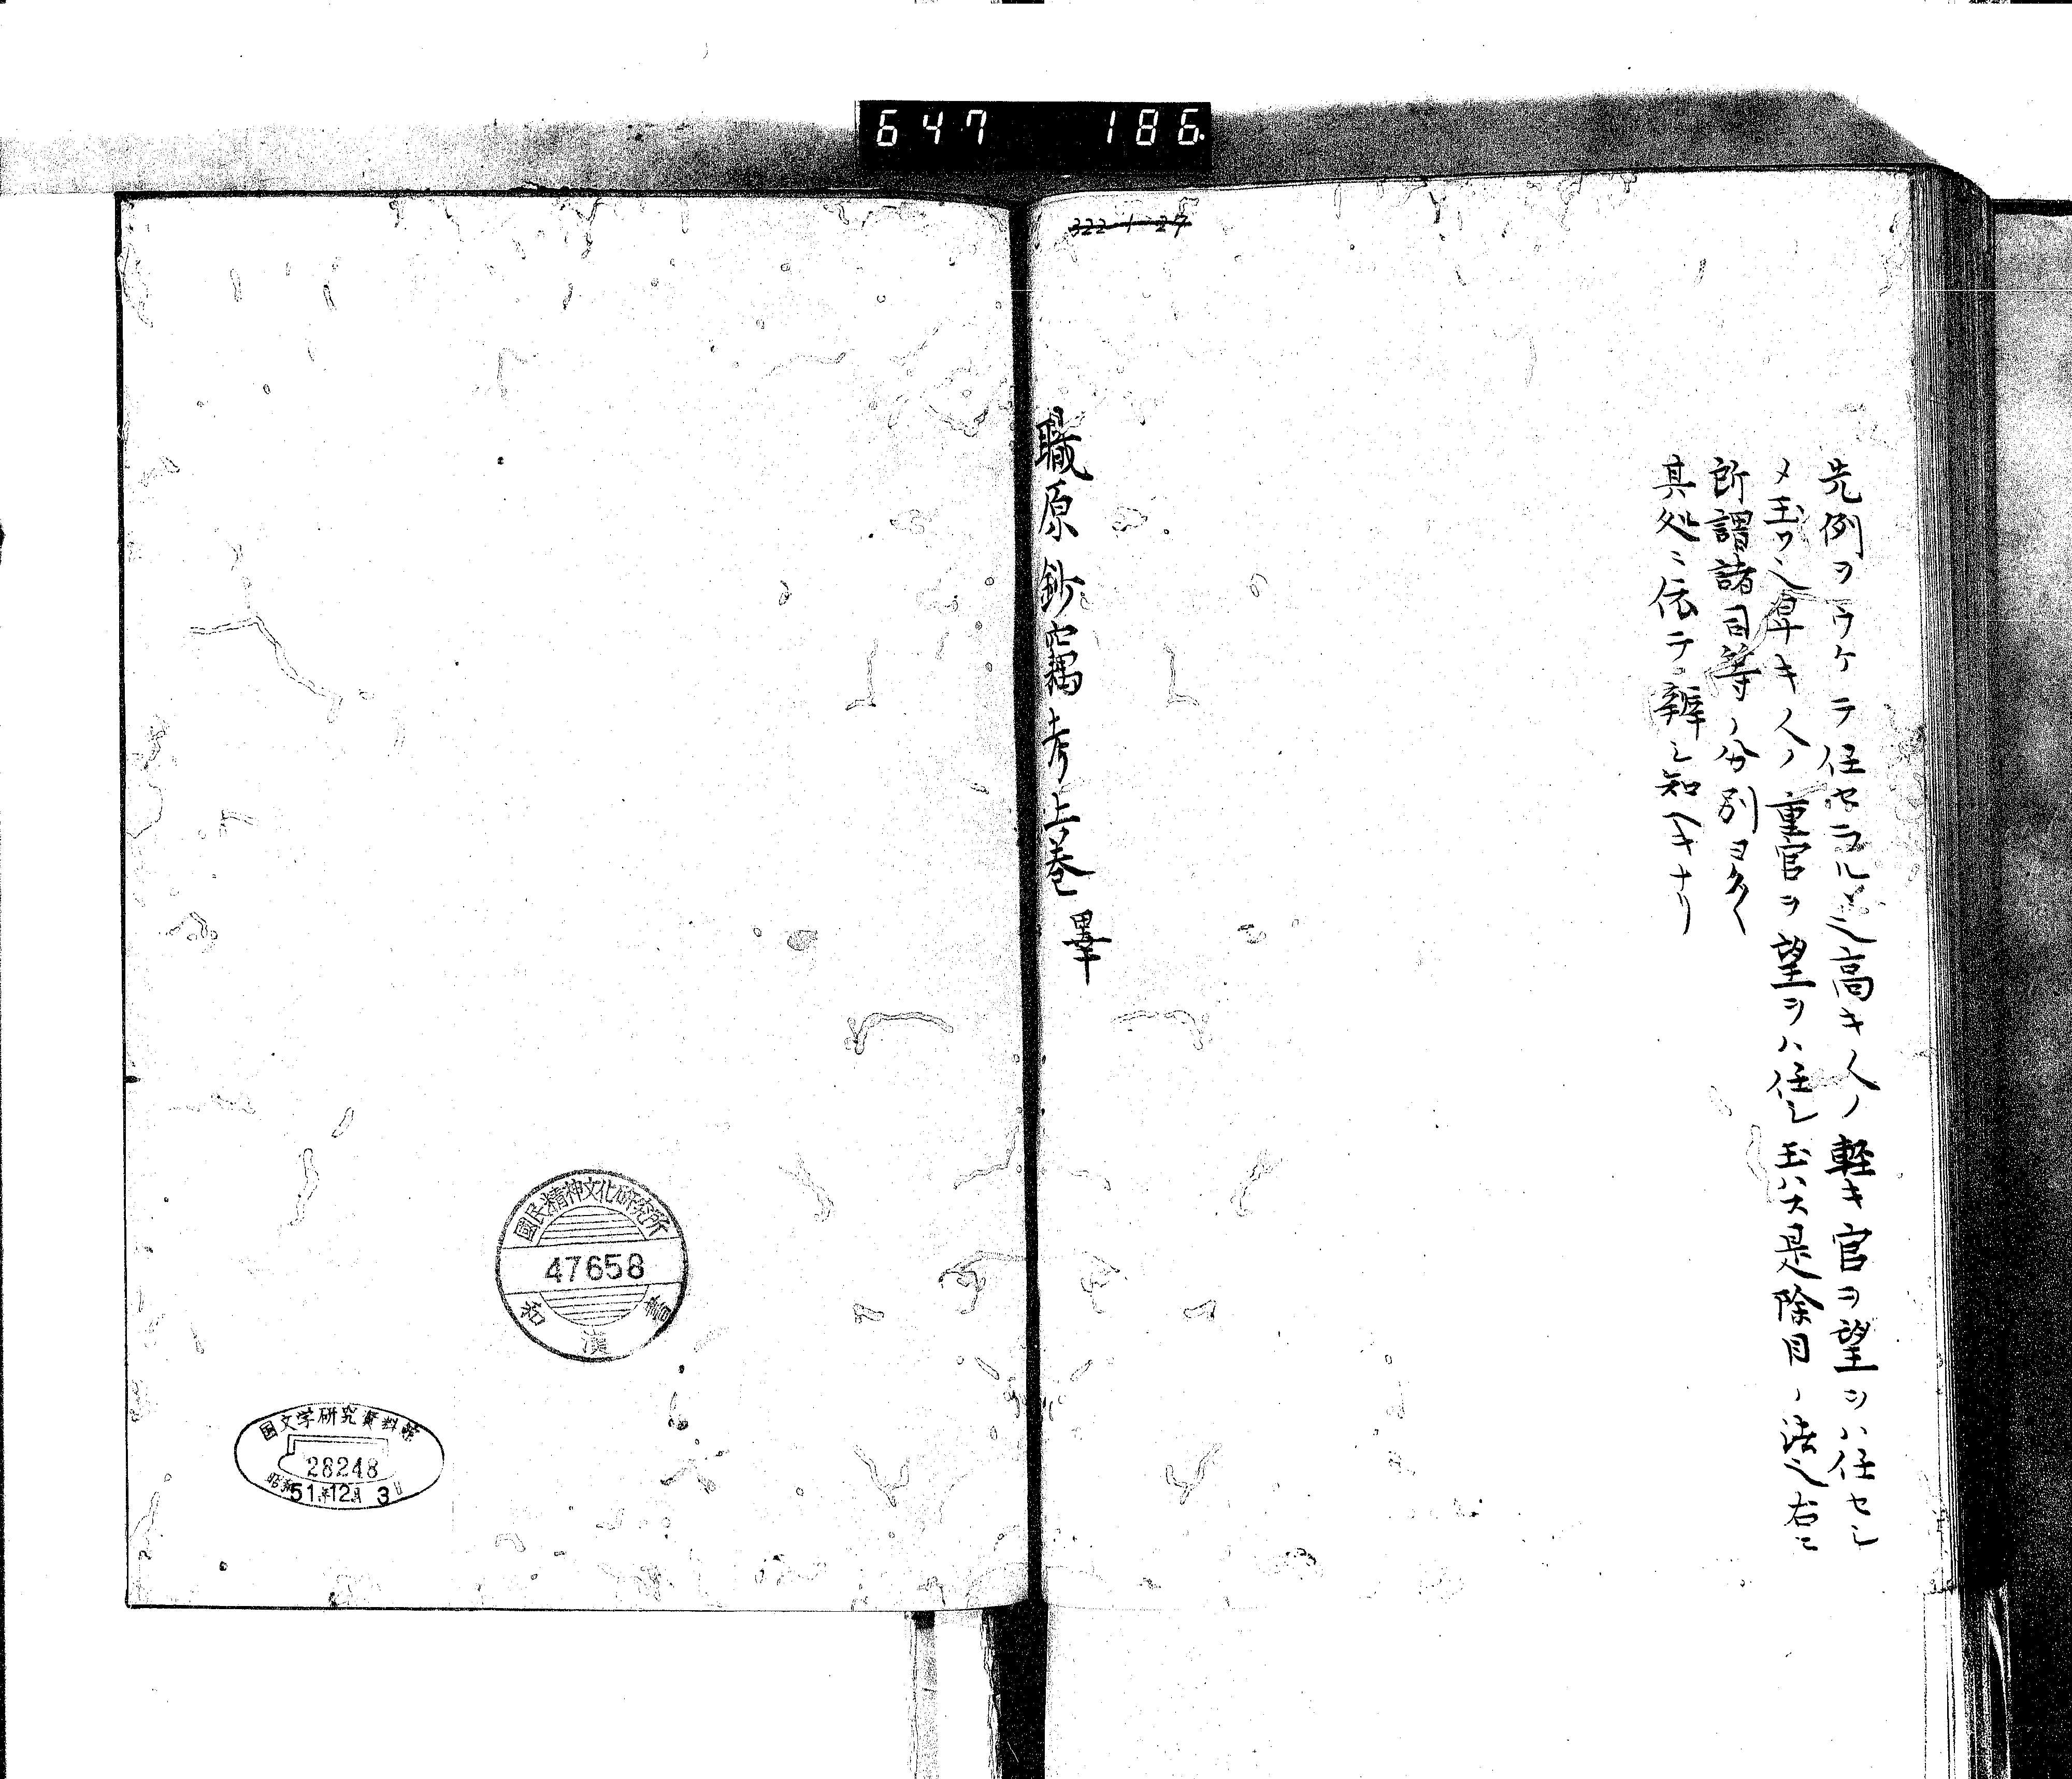 647 186
322-1-27
先例ヲウケテ任セラルヽ也高キ人ノ軽キ官ヲ望ヲハ任セシ
メ玉ワス卑キ人ノ重官ヲ望ヲハ任シ玉ハス是除目ノ法也右ニ
所謂諸司等ノ分別ヨク〱
其処ニ依テ辨シ知ヘキナリ
職原鈔竊考上巻畢
國民精神文化研究所
47658
和漢書
国文学研究資料館
28248
昭和51年12月3日